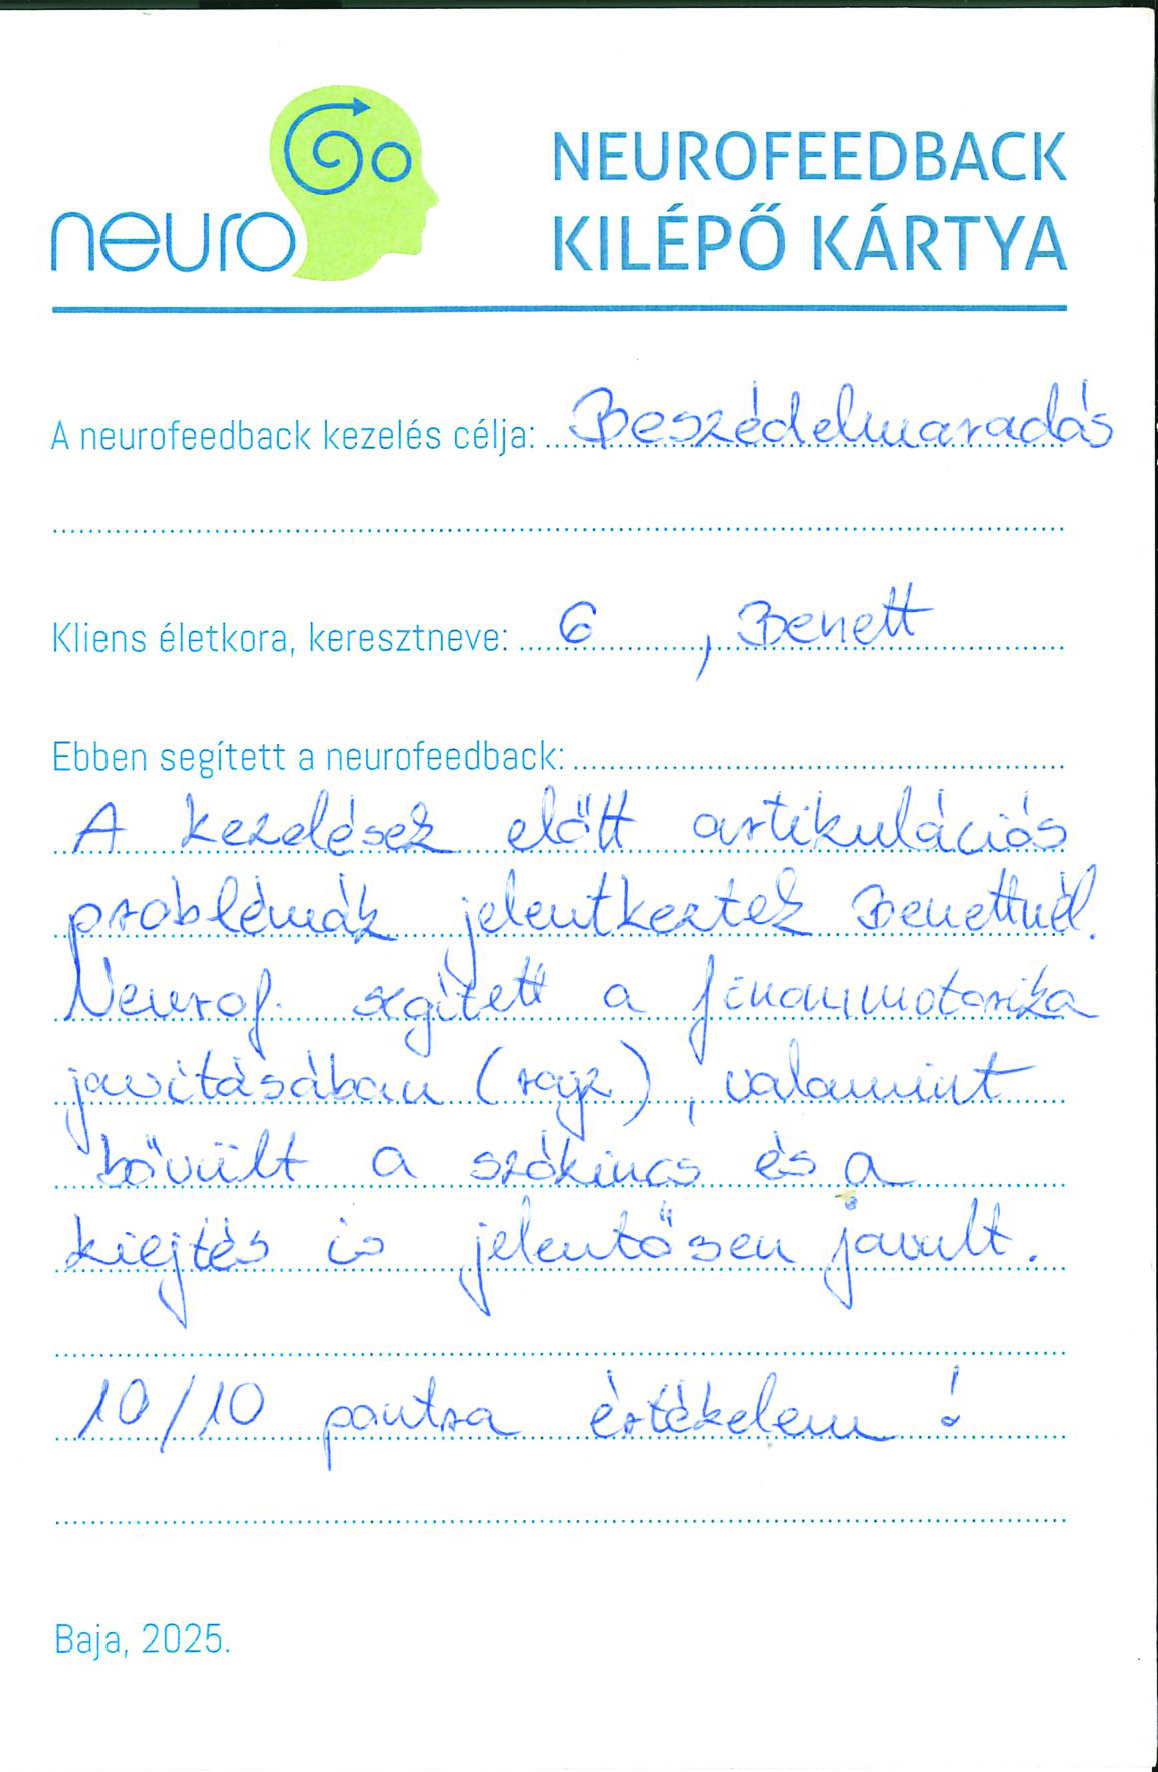 neuro Go
NEUROFEEDBACK
KILÉPŐ KÁRTYA
A neurofeedback kezelés célja: Beszédelmaradás
Kliens életkora, keresztneve: 6, Benett
Ebben segített a neurofeedback:
A kezelések előtt artikulációs
problémák jelentkeztek Benettnél.
Neurof. segített a finommotorika
javításában (rajz), valamint
bővült a szókincs és a
kiejtés is jelentősen javult.
10/10 pontra értékelem!
Baja, 2025.